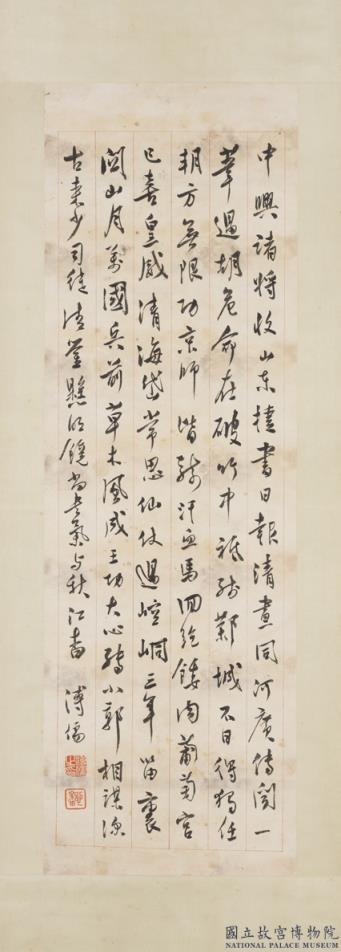 中興諸將收山東捷書日報清晝同河廣傳聞一
葦過胡危命在破竹中祗殘鄴城不日得獨任
朔方無限功京師皆騎汗血馬回紇餧肉葡萄宮
已喜皇威清海岱常思仙仗過崆峒三年笛裏
關山月萬國兵前草木風成王功大心轉小郭相謀深
古來少司徒清鑒懸明鏡尚書氣與秋江杳 溥儒
國立故宮博物院
NATIONAL PALACE MUSEUM